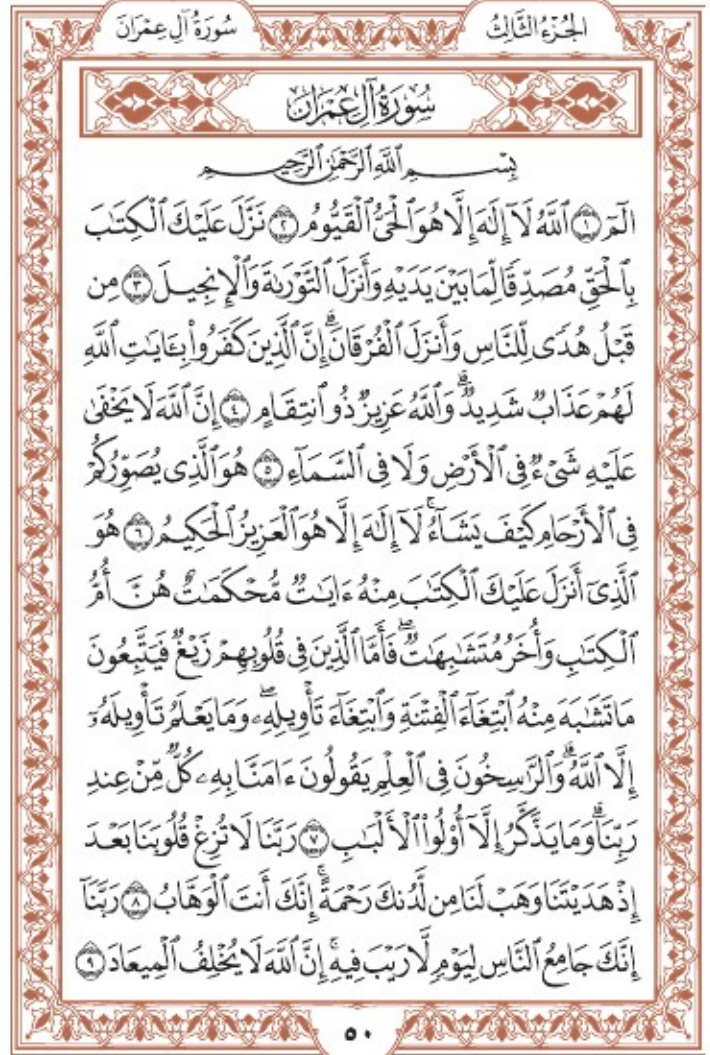 الجُزْءُ الثَّالِثُ
سُورَةُ آلِ عِمْرَانَ
سُورَةُ آلِ عِمْرَانَ
بِسْمِ ٱللَّهِ ٱلرَّحْمَٰنِ ٱلرَّحِيمِ
الٓمٓ ١ ٱللَّهُ لَآ إِلَٰهَ إِلَّا هُوَ ٱلْحَىُّ ٱلْقَيُّومُ ٢ نَزَّلَ عَلَيْكَ ٱلْكِتَٰبَ
بِٱلْحَقِّ مُصَدِّقًا لِّمَا بَيْنَ يَدَيْهِ وَأَنزَلَ ٱلتَّوْرَىٰةَ وَٱلْإِنجِيلَ ٣ مِن
قَبْلُ هُدًى لِّلنَّاسِ وَأَنزَلَ ٱلْفُرْقَانَۗ إِنَّ ٱلَّذِينَ كَفَرُوا۟ بِـَٔايَٰتِ ٱللَّهِ
لَهُمْ عَذَابٌ شَدِيدٌۗ وَٱللَّهُ عَزِيزٌ ذُو ٱنتِقَامٍ ٤ إِنَّ ٱللَّهَ لَا يَخْفَىٰ
عَلَيْهِ شَىْءٌ فِى ٱلْأَرْضِ وَلَا فِى ٱلسَّمَآءِ ٥ هُوَ ٱلَّذِى يُصَوِّرُكُمْ
فِى ٱلْأَرْحَامِ كَيْفَ يَشَآءُۚ لَآ إِلَٰهَ إِلَّا هُوَ ٱلْعَزِيزُ ٱلْحَكِيمُ ٦ هُوَ
ٱلَّذِىٓ أَنزَلَ عَلَيْكَ ٱلْكِتَٰبَ مِنْهُ ءَايَٰتٌ مُّحْكَمَٰتٌ هُنَّ أُمُّ
ٱلْكِتَٰبِ وَأُخَرُ مُتَشَٰبِهَٰتٌۖ فَأَمَّا ٱلَّذِينَ فِى قُلُوبِهِمْ زَيْغٌ فَيَتَّبِعُونَ
مَا تَشَٰبَهَ مِنْهُ ٱبْتِغَآءَ ٱلْفِتْنَةِ وَٱبْتِغَآءَ تَأْوِيلِهِۦۖ وَمَا يَعْلَمُ تَأْوِيلَهُۥٓ
إِلَّا ٱللَّهُۗ وَٱلرَّٰسِخُونَ فِى ٱلْعِلْمِ يَقُولُونَ ءَامَنَّا بِهِۦ كُلٌّ مِّنْ عِندِ
رَبِّنَاۗ وَمَا يَذَّكَّرُ إِلَّآ أُو۟لُوا۟ ٱلْأَلْبَٰبِ ٧ رَبَّنَا لَا تُزِغْ قُلُوبَنَا بَعْدَ
إِذْ هَدَيْتَنَا وَهَبْ لَنَا مِن لَّدُنكَ رَحْمَةًۚ إِنَّكَ أَنتَ ٱلْوَهَّابُ ٨ رَبَّنَآ
إِنَّكَ جَامِعُ ٱلنَّاسِ لِيَوْمٍ لَّا رَيْبَ فِيهِۚ إِنَّ ٱللَّهَ لَا يُخْلِفُ ٱلْمِيعَادَ ٩
٥٠